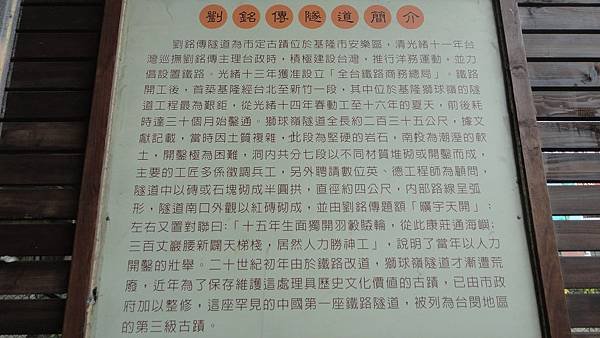 劉銘傳隧道簡介
劉銘傳隧道為市定古蹟位於基隆市安樂區，清光緒十一年台
灣巡撫劉銘傳主理台政時，積極建設台灣，推行洋務運動，並力
倡設置鐵路。光緒十三年獲准設立「全台鐵路商務總局」。鐵路
開工後，首築基隆經台北至新竹一段，其中位於基隆獅球嶺的隧
道工程最為艱鉅，從光緒十四年春動工至十六年的夏天，前後耗
時達三十個月始鑿通。獅球嶺隧道全長約二百三十五公尺，據文
獻記載，當時因土質複雜，北段為堅硬的岩石，南段為潮溼的軟
土，開鑿極為困難，洞内共分七段以不同材質堆砌或開鑿而成，
主要的工匠多係徵調兵工，另外聘請數位英、德工程師為顧問，
隧道中以磚或石塊砌成半圓拱，直徑約四公尺，内部路線呈弧
形，隧道南口外觀以紅磚砌成，並由劉銘傳題額「曠宇天開」；
左右又置對聯曰：「十五年生面獨開羽轂飈輪，從此康莊通海嶼；
三百丈巖腰新闢天梯棧，居然人力勝神工」，說明了當年以人力
開鑿的壯舉。二十世紀初年由於鐵路改道，獅球嶺隧道才漸遭荒
廢，近年為了保存維護這處理具歷史文化價值的古蹟，已由市政
府加以整修，這座罕見的中國第一座鐵路隧道，被列為台閩地區
的第三級古蹟。